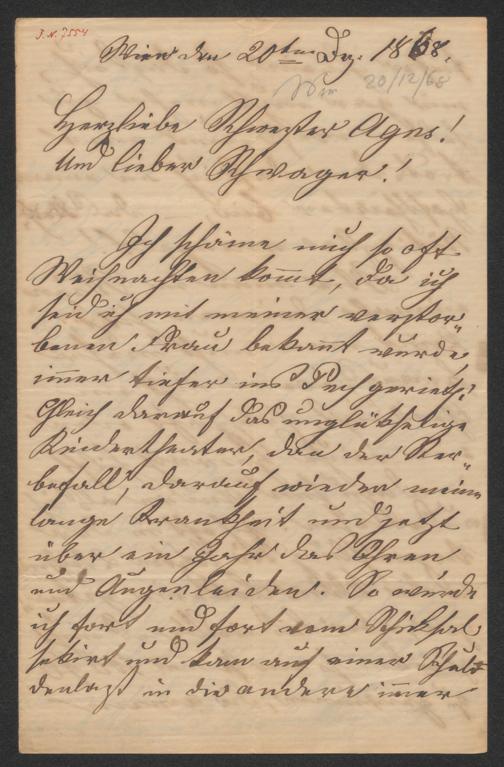 J. N. 7554
Wien den 20ten Dez: 1868.
Wien 20/12/68
Herzliebe Schwester Agnes!
Und lieber Schwager!
Ich schäme mich so oft
Weihnachten kommt, da ich
seid ich mit meiner verstor„
benen Frau bekant wurde,
immer tiefer ins Pech gerieth:
Gleich darauf das unglükselige
Kindertheater, dan der Ster„
befall, darauf wieder meine
lange Krankheit und jetzt
über ein Jahr das Ohren
und Augenleiden. So wurde
ich fort und fort vom Schiksal
sekirt und kam aus einer Schul„
denlast in die andere immer